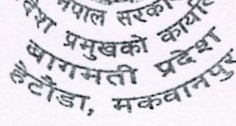 नेपाल सरकार
प्रमुखको
बागमती प्रदेश
हेटौंडा, मकवानपुर